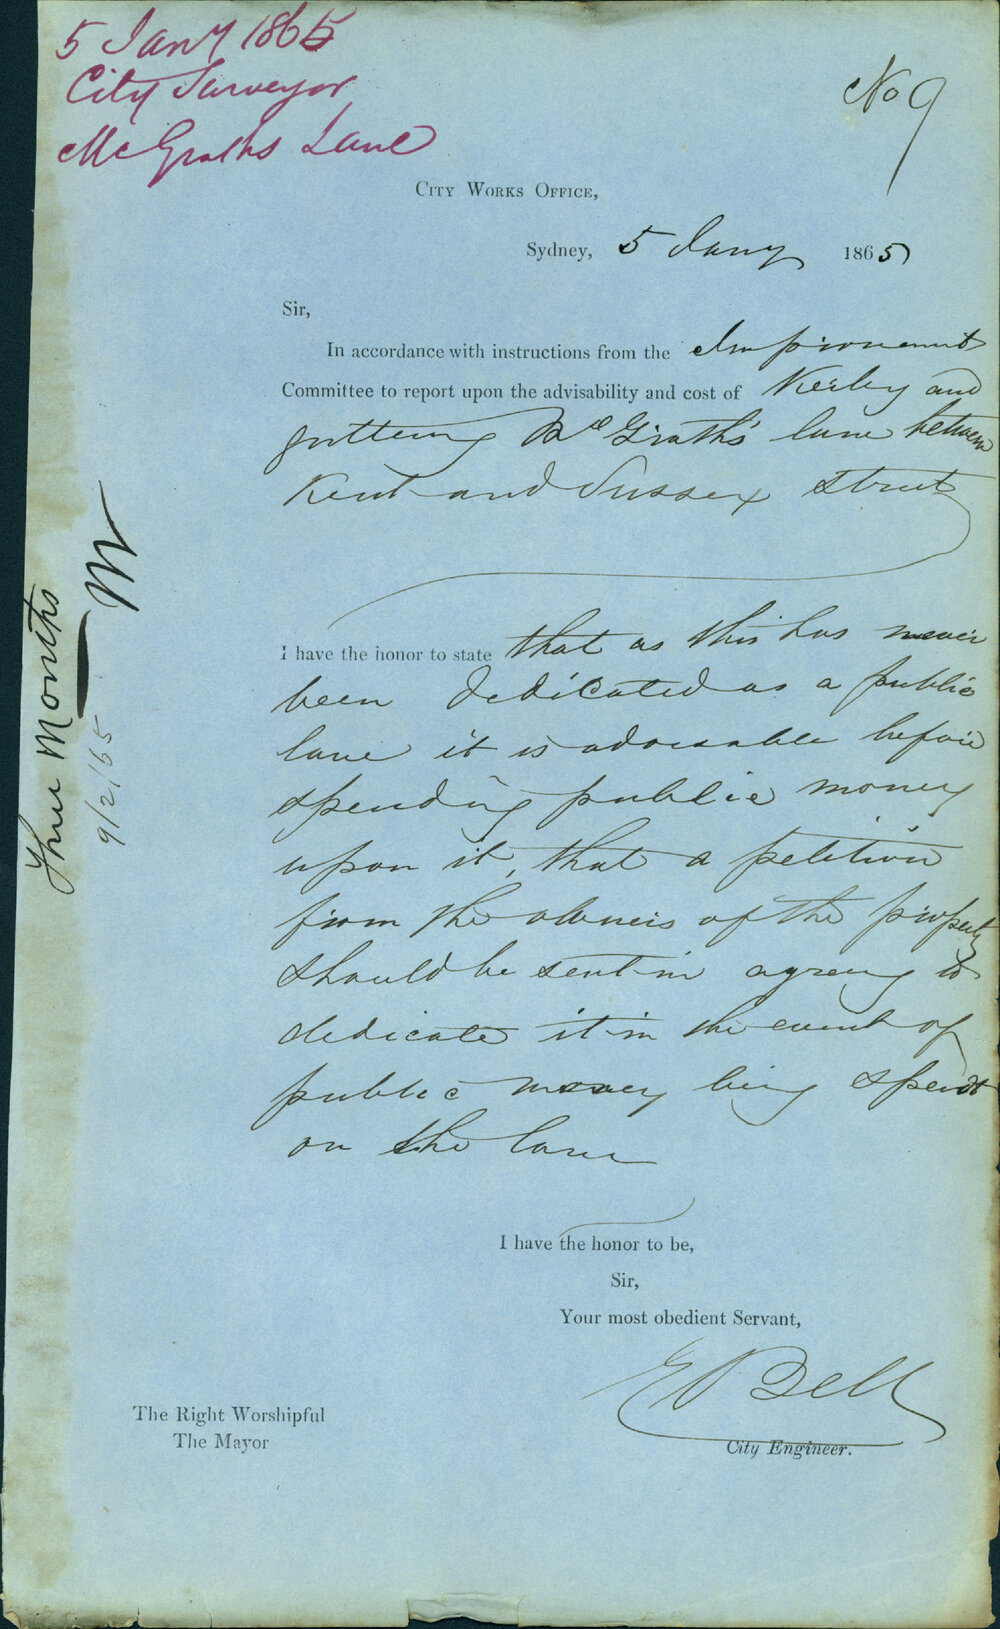 5 Jany 1865
City Surveyor
McGraths Lane
No 9
City Works Office,
Sydney, 5 Jany 1865
Sir,
In accordance with instructions from the Improvement
Committee to report upon the advisability and cost of Kerbg and
guttering McGrath's lane between
Kent and Sussex Street
I have the honor to state that as this has never
been dedicated as a public
lane it is advisable before
spending public money
upon it, that a petition
from the owners of the property
should be sent in agreeing to
dedicate it in the event of
public money being spent
on the lane
I have the honor to be,
Sir,
Your most obedient Servant,
E Bell
City Engineer.
The Right Worshipful
The Mayor
Three Months
9/2/65